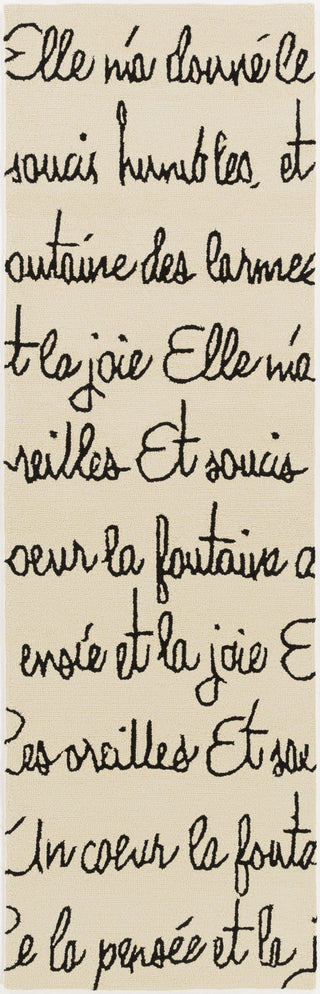 Elle m'a donné le
soucis humbles, et
ontaine des larmes
t la joie Elle m'a
reilles Et soucis
oeur la fontaine a
ensée et la joie E
les oreilles Et sou
Un coeur la fonta
le la pensée et la j